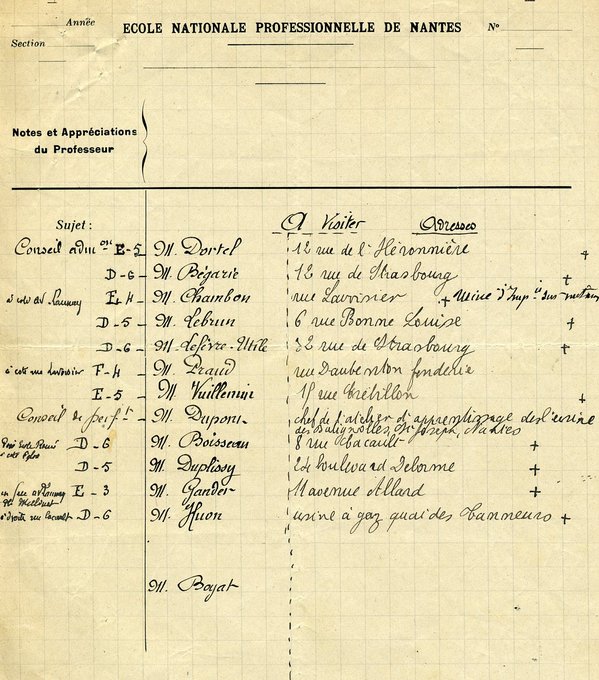 Année
ECOLE NATIONALE PROFESSIONNELLE DE NANTES
N°
Section
Notes et Appréciations
du Professeur
Sujet :
A Visiter
Adresses
Conseil adm on E-5 M. Dortel 12 rue de l'Héronnière +
D-6 M. Bégarie 12 rue de Strasbourg +
à côté Launay E-4 M. Chambon rue Lavrinier + Usine d'Imp
D-5 M. Lebrun 6 rue Bonne Louise +
D-6 M. Lefèvre-Utile 32 rue de Strasbourg +
à côté rue F-4 M. Praud rue Daubenton fonderie
E-5 M. Vuillemin 15 rue Crébillon +
Conseil de perf t M. Dupont chef de l'atelier d'apprentissage de l'usine
des Batignolles, St Joseph, Nantes
D-6 M. Boisseau 8 rue Cacault +
D-5 M. Duplissy 24 boulevard Delorme +
E-3 M. Gander 11 avenue Allard +
à droite rue Cacault D-6 M. Huon usine à gaz quai des Tanneurs +
M. Boyat